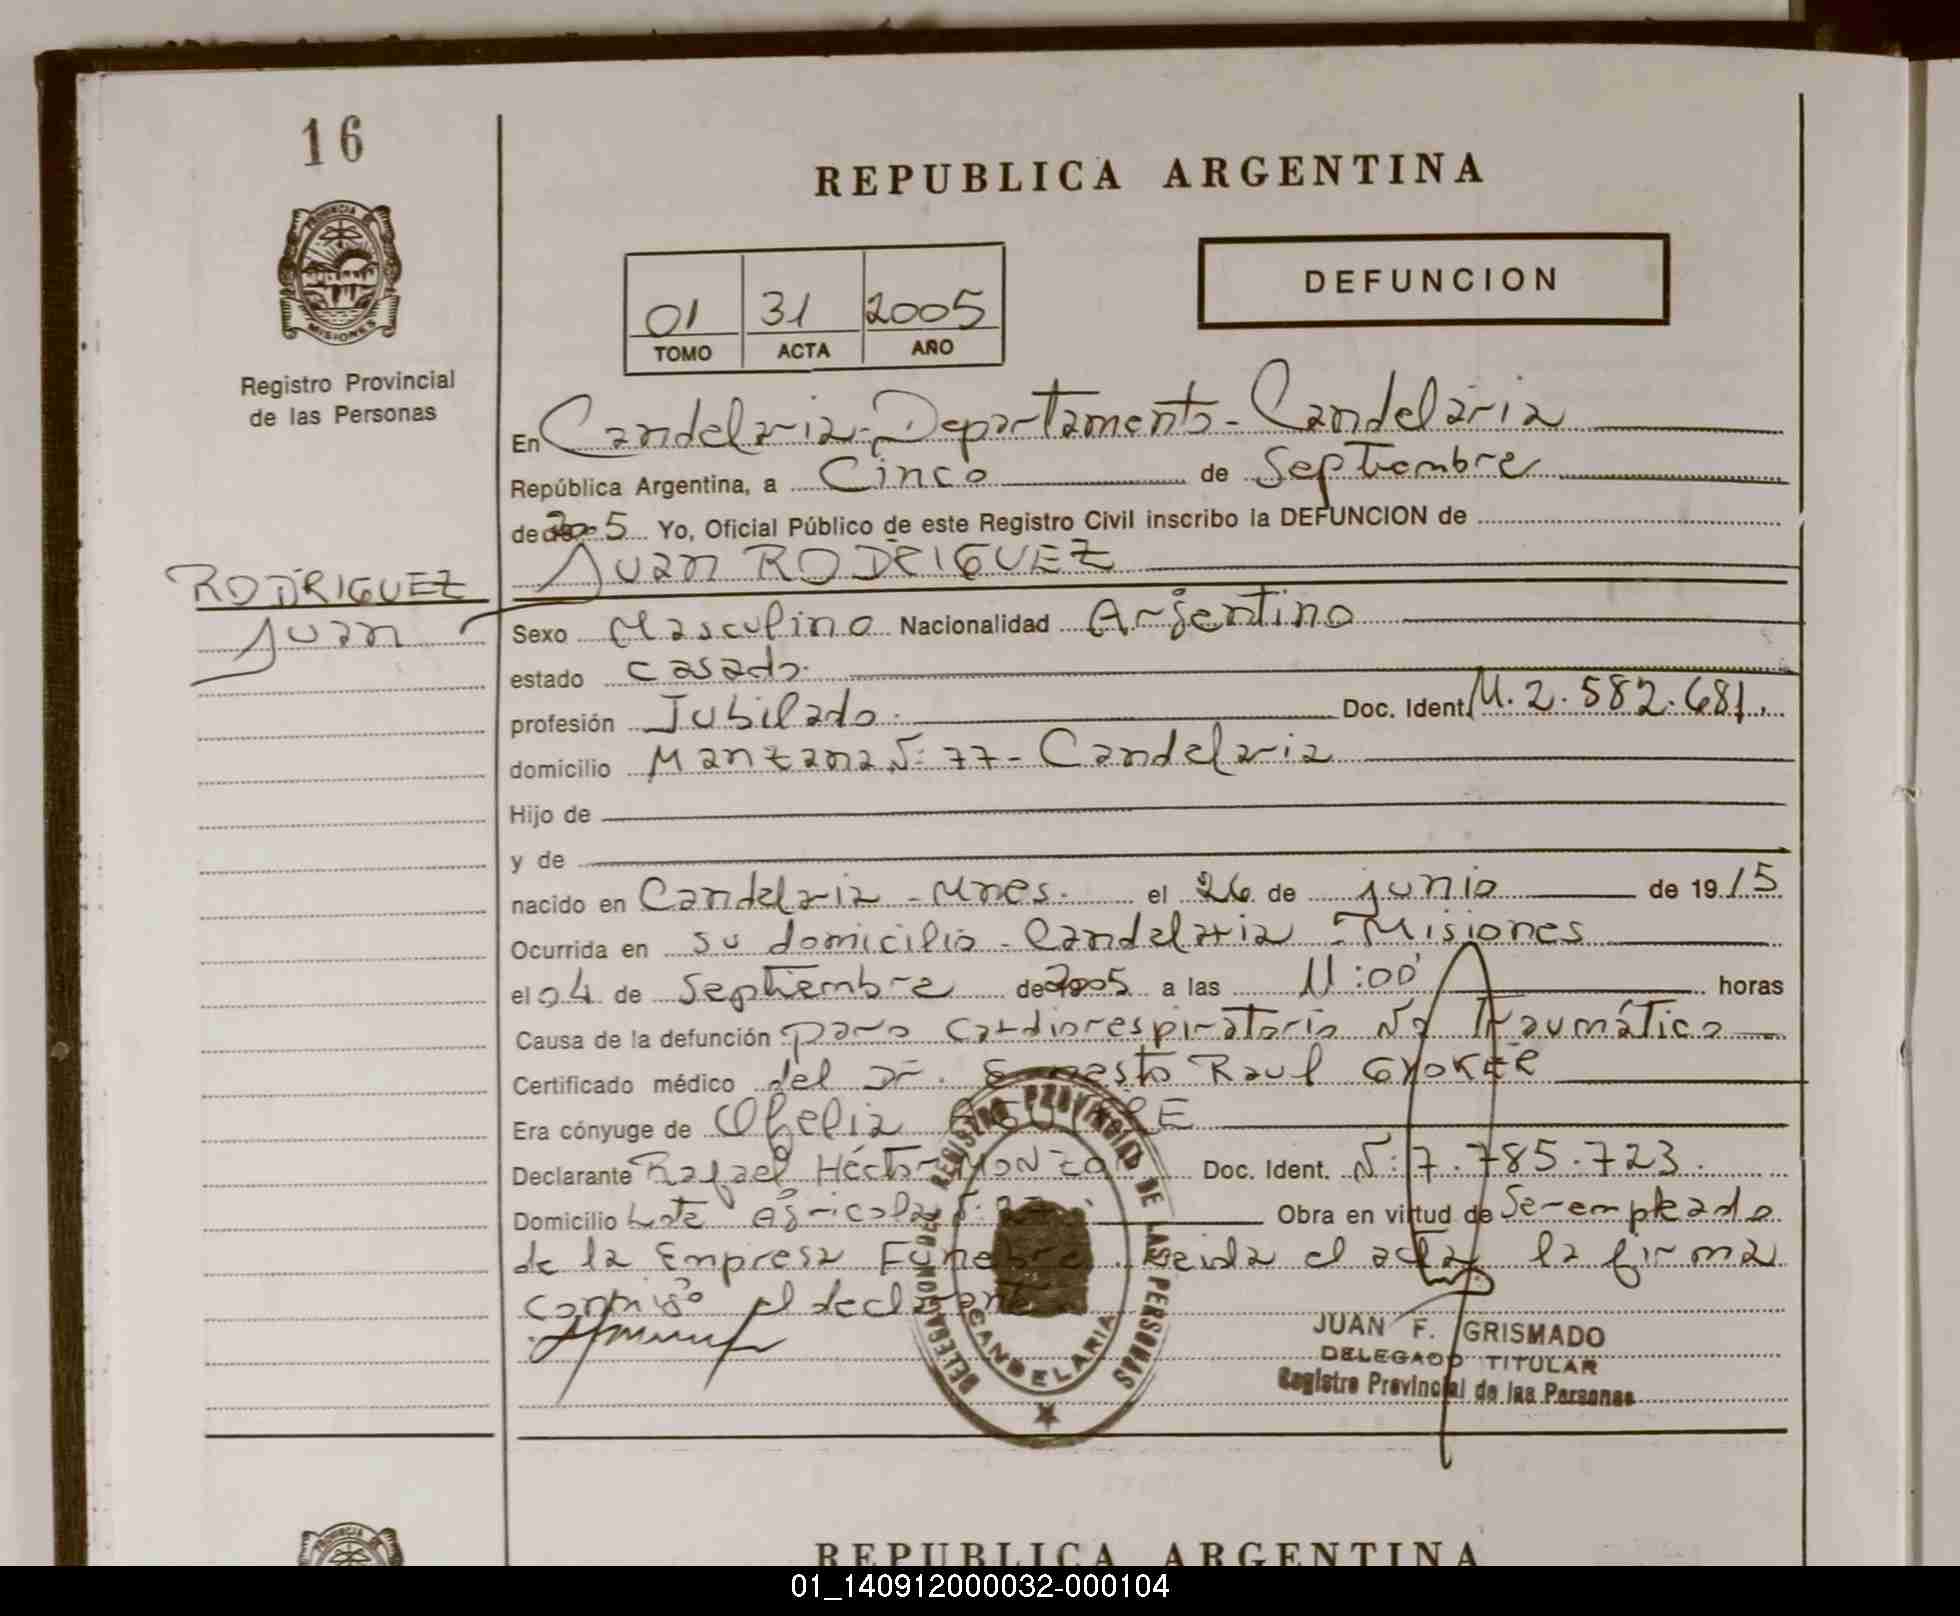 16
REPUBLICA ARGENTINA
PROVINCIA DE
MISIONES
Registro Provincial
de las Personas
DEFUNCION
01 31 2005
TOMO ACTA AÑO
En Candelaria - Departamento - Candelaria
República Argentina, a Cinco de Septiembre
de 2005 Yo, Oficial Público de este Registro Civil inscribo la DEFUNCION de
Juan RODRIGUEZ
RODRIGUEZ
Juan
Sexo Masculino Nacionalidad Argentino
estado casado.
profesión Jubilado. Doc. Ident. M. 2.582.681.
domicilio Manzana N: 77 - Candelaria
Hijo de
y de
nacido en Candelaria - Mnes. el 26 de junio de 1915
Ocurrida en su domicilio - Candelaria - Misiones
el 04 de Septiembre de 2005 a las 11:00 horas
Causa de la defunción paro cardiorespiratorio No Traumático
Certificado médico del Dr. Ernesto Raul GYOKER
Era cónyuge de Ofelia
Declarante Rafael Héctor MONZON Doc. Ident. N: 7.785.723.
Domicilio Lote Agricola N: Obra en virtud de Ser empleado
de la Empresa Funebre. Leida el acta, la firma
conmigo el declarante
DELEGACION DEL REGISTRO PROVINCIAL DE LAS PERSONAS
CANDELARIA
JUAN F. GRISMADO
DELEGADO TITULAR
Registro Provincial de las Personas
REPUBLICA ARGENTINA
01_140912000032-000104